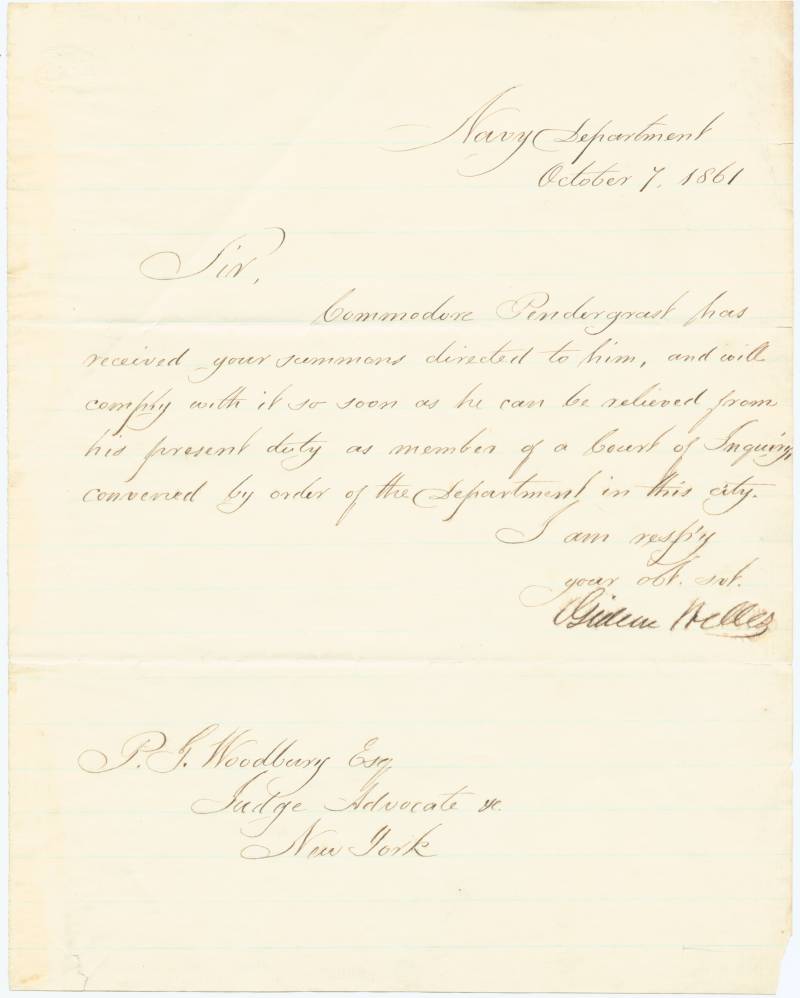 Navy Department
October 7, 1861
Sir,
Commodore Pendergrast has
received your summons directed to him, and will
comply with it so soon as he can be relieved from
his present duty as member of a Court of Inquiry,
convened by order of the Department in this city.
I am resp'y
your obt. svt.
Gideon Welles
P. G. Woodbury Esq
Judge Advocate &c.
New York